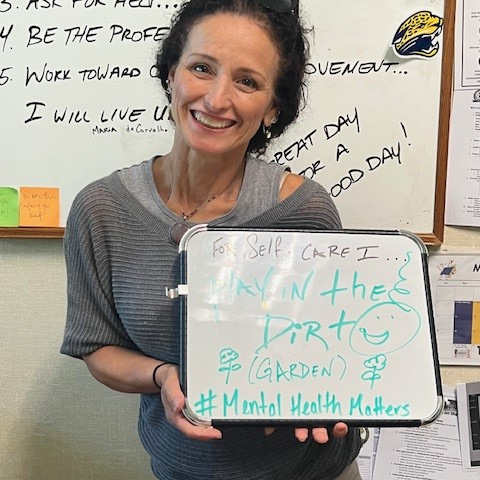 3. ASK FOR HELP...
4. BE THE PROFE
5. WORK TOWARD OVEMENT...
I WILL LIVE U
Maria de Carvalho
GREAT DAY
FOR A
GOOD DAY!
FOR SELF-CARE I...
PLAY IN the
DiRt
(GARDEN)
#Mental Health Matters